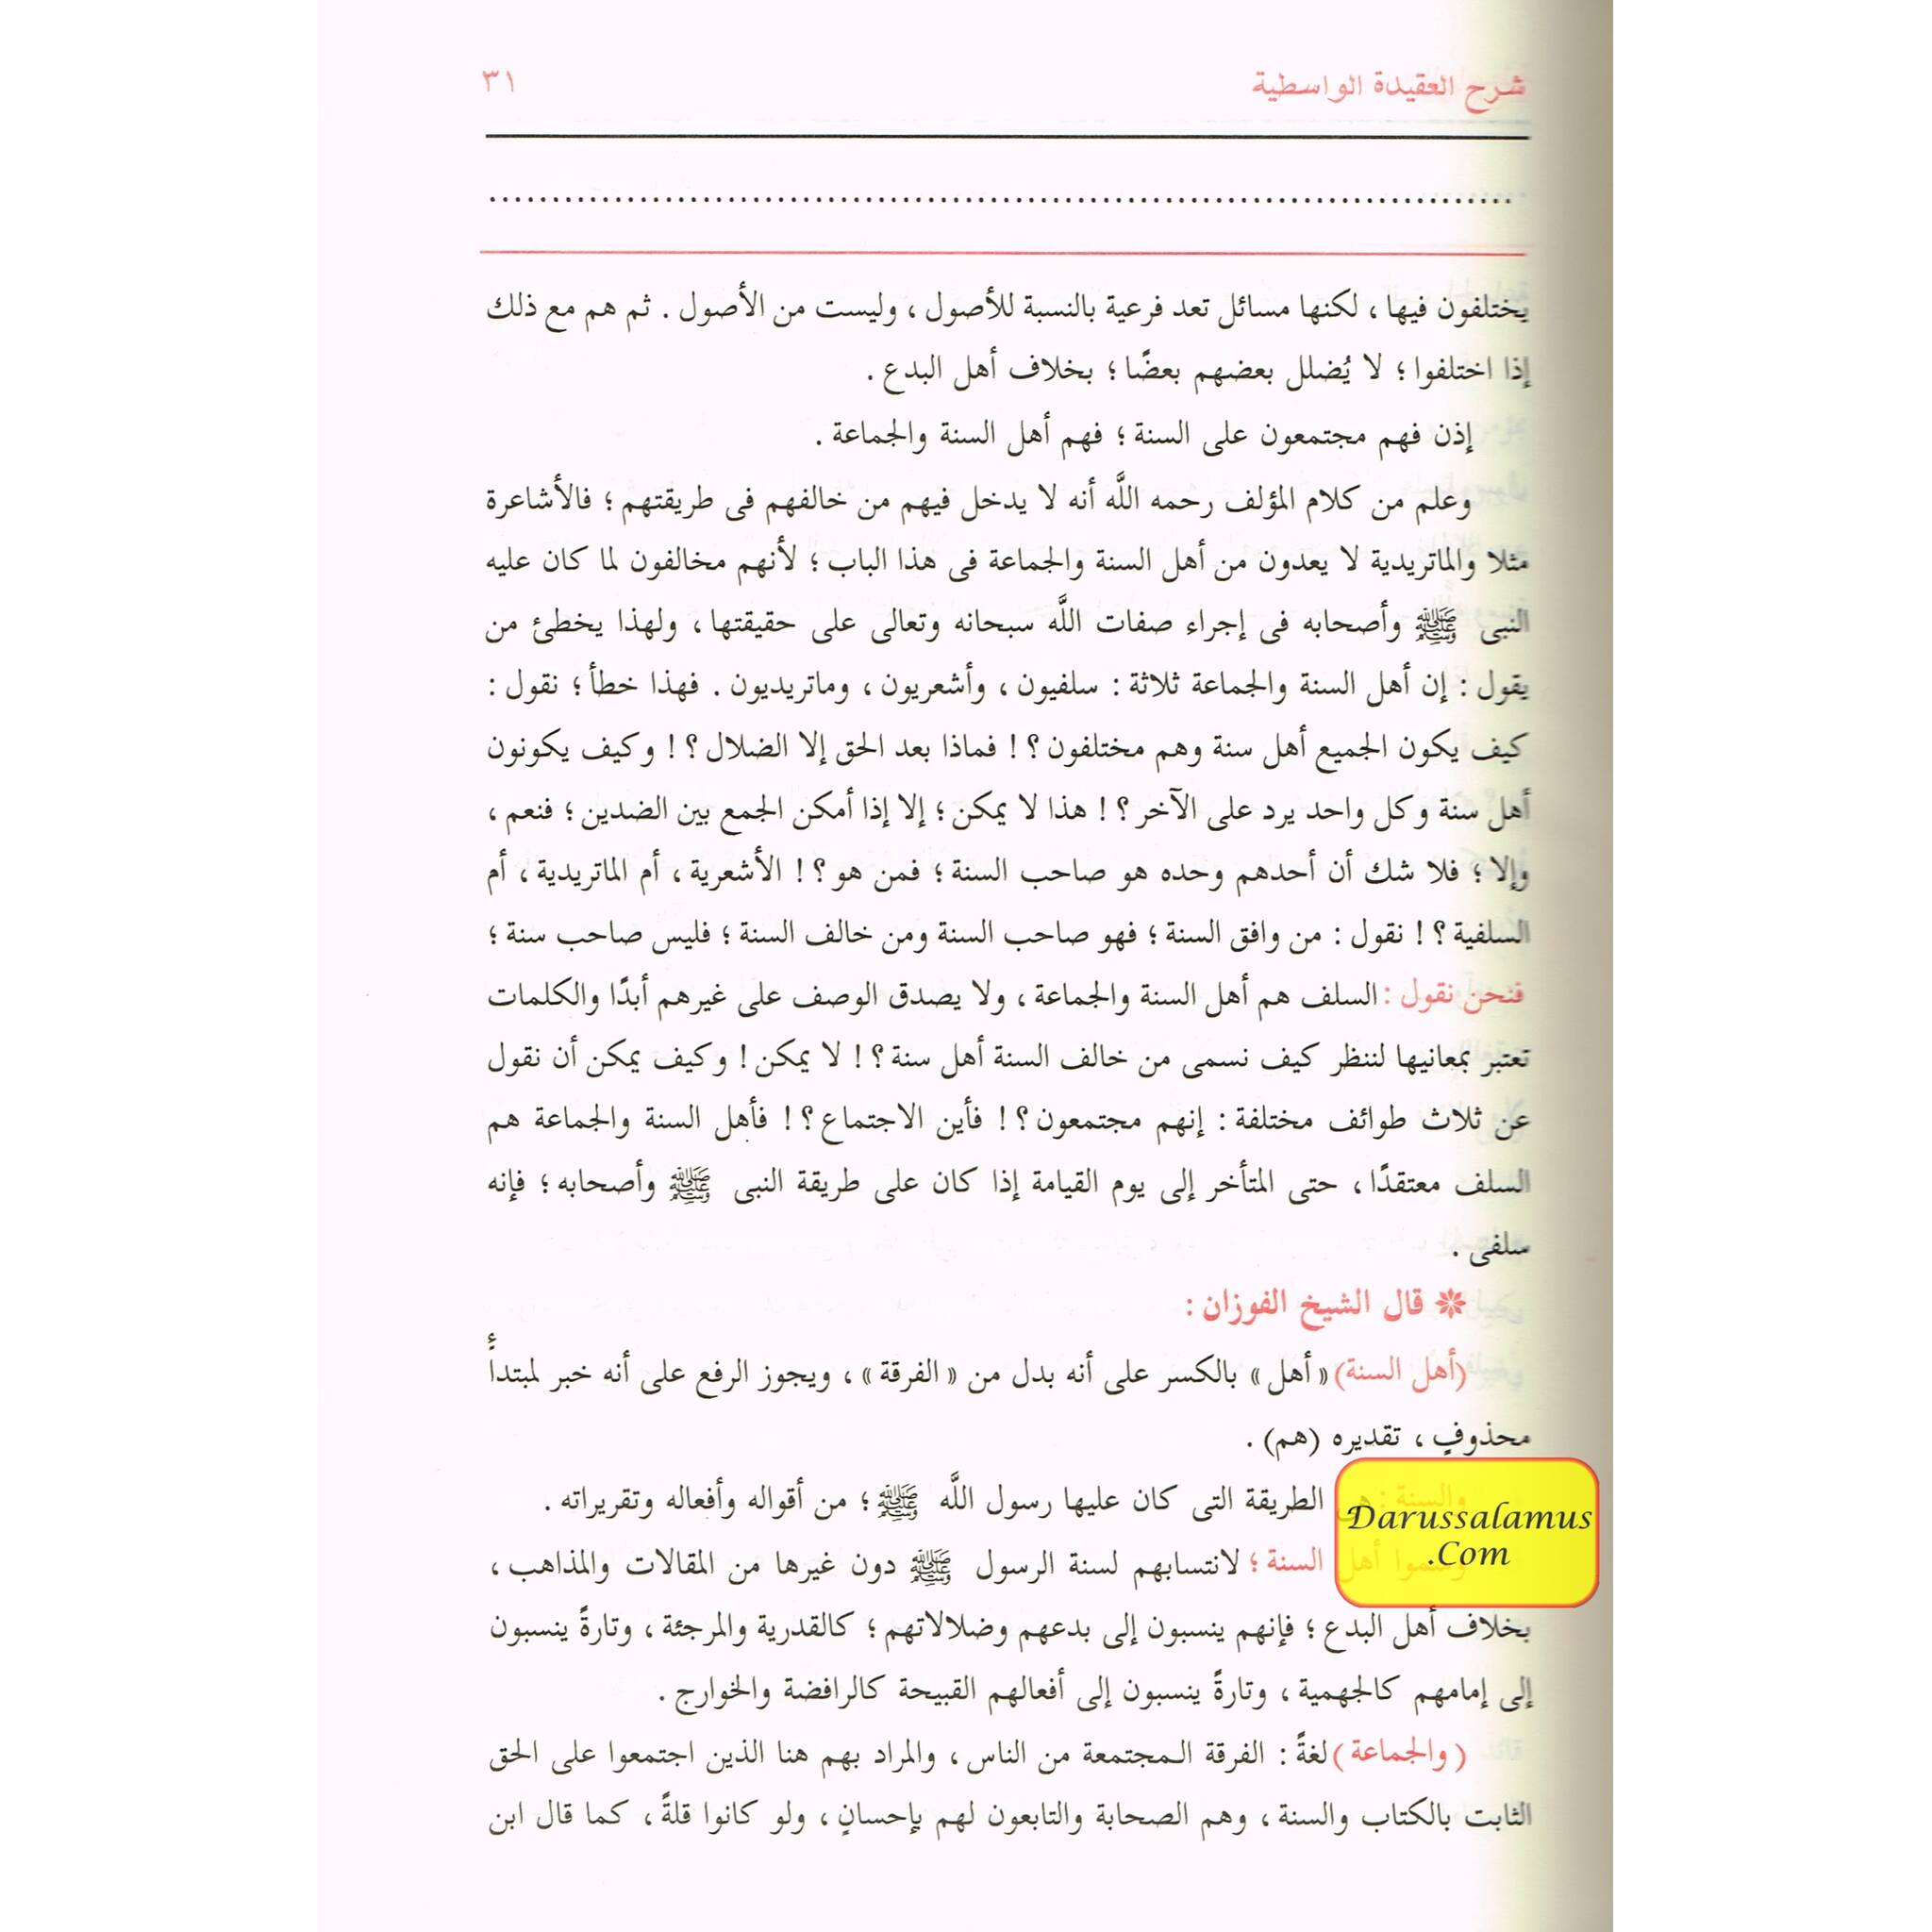 شرح العقيدة الواسطية ٣١
يختلفون فيها ، لكنها مسائل تعد فرعية بالنسبة للأصول ، وليست من الأصول . ثم هم مع ذلك
إذا اختلفوا ؛ لا يُضلل بعضهم بعضًا ؛ بخلاف أهل البدع .
إذن فهم مجتمعون على السنة ؛ فهم أهل السنة والجماعة .
وعلم من كلام المؤلف رحمه اللَّه أنه لا يدخل فيهم من خالفهم فى طريقتهم ؛ فالأشاعرة
مثلا والماتريدية لا يعدون من أهل السنة والجماعة فى هذا الباب ؛ لأنهم مخالفون لما كان عليه
النبى ﷺ وأصحابه فى إجراء صفات اللَّه سبحانه وتعالى على حقيقتها ، ولهذا يخطئ من
يقول : إن أهل السنة والجماعة ثلاثة : سلفيون ، وأشعريون ، وماتريديون . فهذا خطأ ؛ نقول :
كيف يكون الجميع أهل سنة وهم مختلفون ؟ ! فماذا بعد الحق إلا الضلال ؟ ! وكيف يكونون
أهل سنة وكل واحد يرد على الآخر ؟ ! هذا لا يمكن ؛ إلا إذا أمكن الجمع بين الضدين ؛ فنعم ،
وإلا ؛ فلا شك أن أحدهم وحده هو صاحب السنة ؛ فمن هو ؟ ! الأشعرية ، أم الماتريدية ، أم
السلفية ؟ ! نقول : من وافق السنة ؛ فهو صاحب السنة ومن خالف السنة ؛ فليس صاحب سنة ؛
فنحن نقول : السلف هم أهل السنة والجماعة ، ولا يصدق الوصف على غيرهم أبدًا والكلمات
تعتبر بمعانيها لننظر كيف نسمى من خالف السنة أهل سنة ؟ ! لا يمكن ! وكيف يمكن أن نقول
عن ثلاث طوائف مختلفة : إنهم مجتمعون ؟ ! فأين الاجتماع ؟ ! فأهل السنة والجماعة هم
السلف معتقدًا ، حتى المتأخر إلى يوم القيامة إذا كان على طريقة النبى ﷺ وأصحابه ؛ فإنه
سلفى .
❋ قال الشيخ الفوزان :
(أهل السنة) « أهل » بالكسر على أنه بدل من « الفرقة » ، ويجوز الرفع على أنه خبر لمبتدأٍ
محذوفٍ ، تقديره (هم) .
والسنة : هى الطريقة التى كان عليها رسول اللَّه ﷺ ؛ من أقواله وأفعاله وتقريراته .
وسموا أهل السنة ؛ لانتسابهم لسنة الرسول ﷺ دون غيرها من المقالات والمذاهب ،
بخلاف أهل البدع ؛ فإنهم ينسبون إلى بدعهم وضلالاتهم ؛ كالقدرية والمرجئة ، وتارةً ينسبون
إلى إمامهم كالجهمية ، وتارةً ينسبون إلى أفعالهم القبيحة كالرافضة والخوارج .
( والجماعة ) لغةً : الفرقة المجتمعة من الناس ، والمراد بهم هنا الذين اجتمعوا على الحق
الثابت بالكتاب والسنة ، وهم الصحابة والتابعون لهم بإحسانٍ ، ولو كانوا قلةً ، كما قال ابن
Darussalamus
.Com